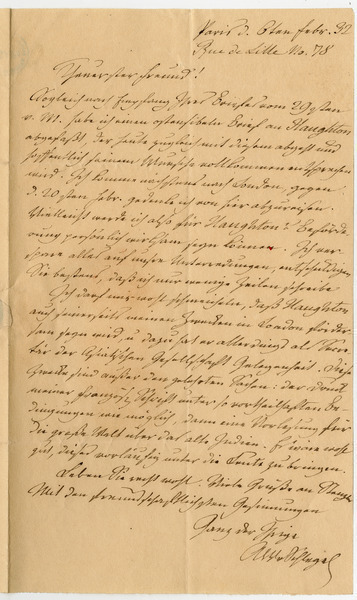 Paris d. 6ten Febr. 32
Rue de Lille No. 78
Theuerster Freund!
Sogleich nach Empfang Ihres Briefes vom 29sten
v. M. habe ich einen ostensibeln Brief an Haughton
abgefaßt, der heute zugleich mit diesem abgeht und
hoffentlich seinem Wunsche vollkommen entsprechen
wird. Ich komme nächstens nach London, gegen
d. 20sten Febr. gedenke ich von hier abzureisen.
Vielleicht werde ich also für Haughton's Beförde
rung persönlich wirksam seyn können. Ich ver
spare alles auf unsre Unterredungen, entschuldigen
Sie bestens, daß ich nur wenige Zeilen schreibe.
Ich darf mir wohl schmeicheln, daß Haughton
auch seinerseits meinen Zwecken in London förder
sam seyn wird, u dazu hat er allerdings als Secre
tär der Asiatischen Gesellschaft Gelegenheit. Diese
Zwecke sind außer den gelehrten Sachen: der Druck
meiner französ. Schrift unter so vortheilhaften Be
dingungen wie möglich, dann eine Vorlesung für
die große Welt über das alte Indien. Es wäre wohl
gut, dieses vorläufig unter die Leute zu bringen.
Leben Sie recht wohl. Viele Grüße an
Mit den freundschaftlichsten Gesinnungen
Ganz der Ihrige
AWvSchlegel